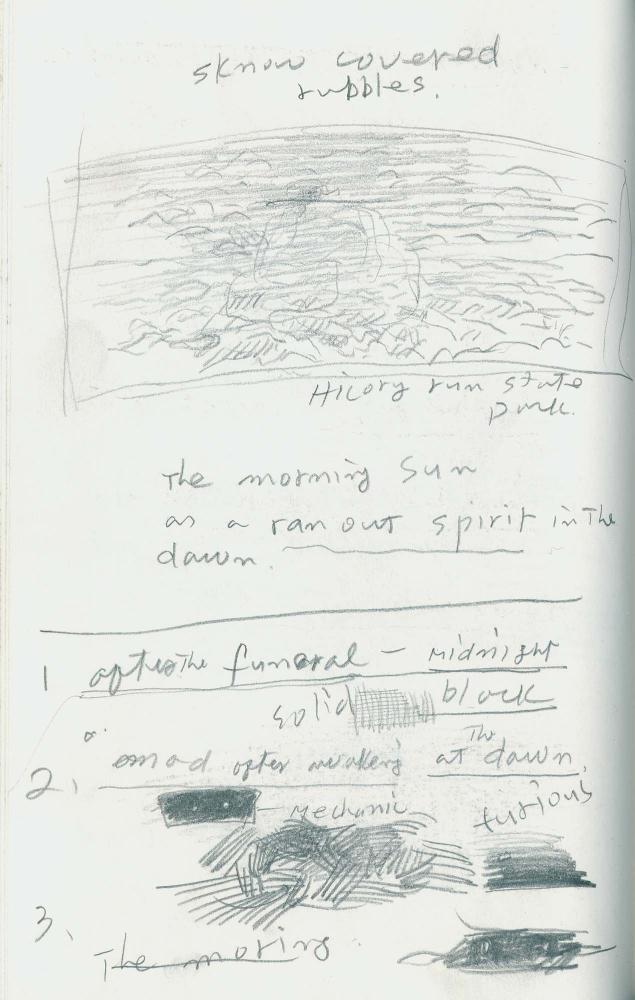 sknow covered
rubbles.
Hicory run state
park.
The morning Sun
as a ran out spirit in The
dawn.
1 after The funeral - midnight
solid black
2. a mad after awakenig at The dawn.
mechanic furious
3. The moring.